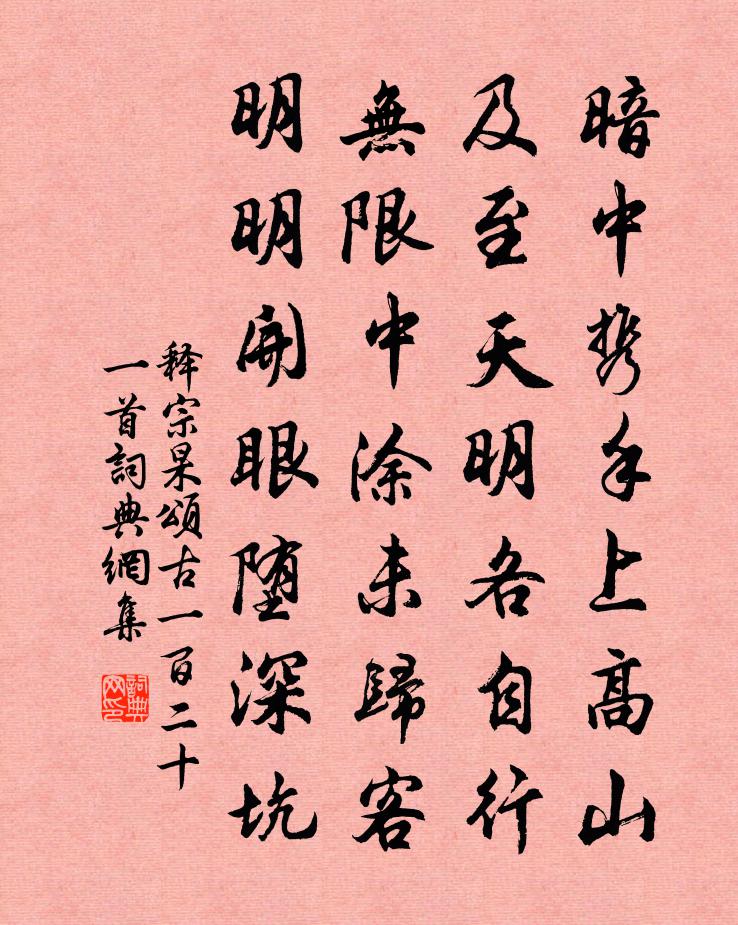 暗中携手上高山
及至天明各自行
無限中涂未歸客
明明開眼堕深坑
释宗杲頌古一百二十
一首詞典網集
詞典
网印